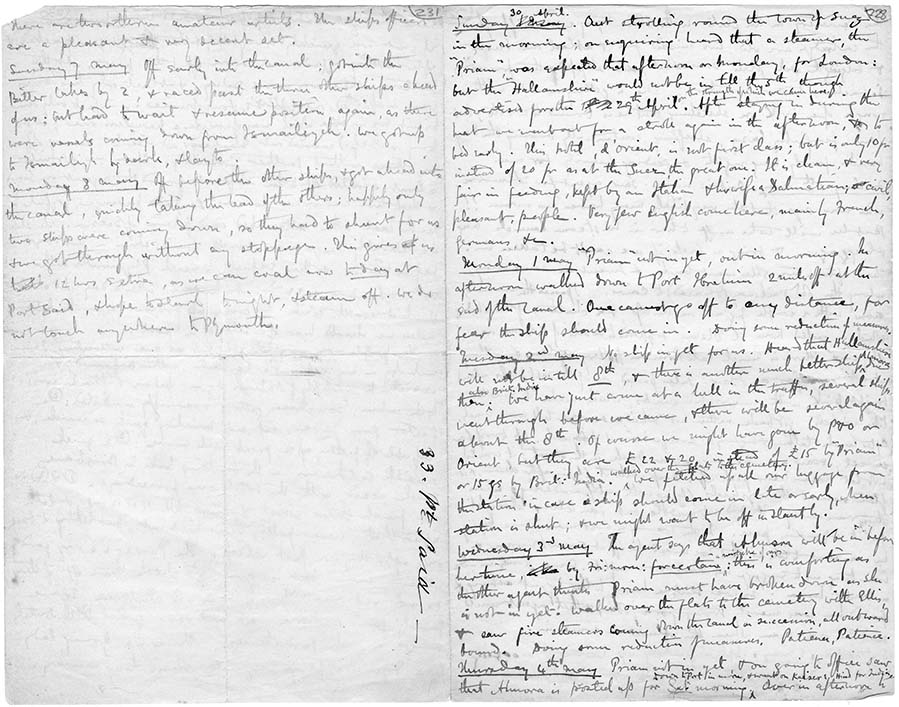 231
there are two others in amateur
are a pleasant & very decent set.
Sunday 7 May Off early into the canal; got into the
Bitter Lakes by 2, & raced past the three other ships ahead
of us; but had to wait & resume position again, as there
were vessels coming down from Ismailiyeh. We got up
to Ismailiyeh by dark, & lay to.
Monday 8 May Off before the other ships, & got ahead into
the canal, quickly taking the lead of the others; happily only
two ships were coming down, so they had to shunt for us
& we got through without any stoppage. This gives us
12 hrs extra, as we can coal now to day at
Port Said, & hope to tonight, & steam off. We do
not touch anywhere to Plymouth.
33. Pt Said
228
Sunday 30 April. Out strolling round the town of Suez
in the morning; on enquiring heard that a steamer, the
"Priam", was expected that afternoon or Monday, for London:
but the "Hallamshire" would not be in till the 5th though
advertised for the 29th April. After staying in during the
heat we went out for a stroll again in the afternoon, & to
bed early. This hotel, d'orient, is not first class; but is only 10 fr
instead of 20 fr as at the Suez the great one. It is clean, & very
fair in feeding, kept by an Italian & his wife a Dalmatian; civil,
pleasant, people. Very few English come here, mainly French,
Germans, &c.
Monday 1 May "Priam" not in yet, out in morning. In
afternoon walked down to Port Ibrahim 2 miles off at the
end of the canal. One cannot go off to any distance, for
fear the ship should come in. Doing some reduction of measures.
Tuesday 2nd May No ship in yet for us. Heard that Hallamshire
will not be in till 8th, & there is another much better ship Almora
then. also Brit. India We have just come at a lull in the traffic, several ships
went through before we came, & there will be several again
about the 8th. Of course we might have gone by P&O or
Orient, but they are £22 & 20, instead of £15 by "Priam"
or 15 gs by Brit: India. walked over the flats to the cemetery. We fetched up all our luggage from
the station in case a ship should come in late or early, when
station is shut; & we might want to be off instantly.
Wednesday 3rd May The agent says that Almora will be in before
her time, by Fri: morn: for certain; this is comforting as
another agent thinks Priam must have broken down as she
is not in yet. Walked over the flats to the cemetery with Ellis,
& saw five steamers coming down the canal in succession, all outward
bound. Doing some reduction of measures. Patience, Patience.
Thursday 4th May Priam not in yet & on going to office saw
that Almora is posted up for morning. Over in afternoon to